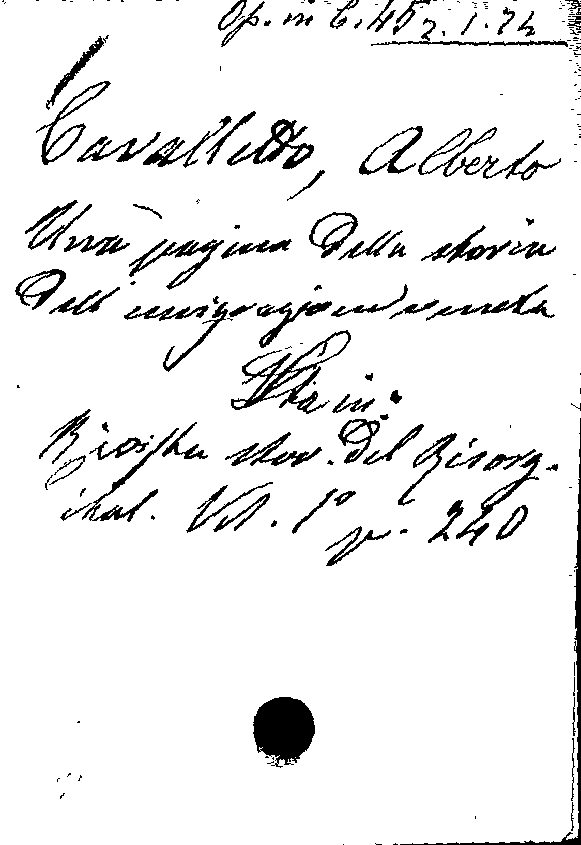 Op. in C. 45 2.1.72
Cavalletto, Alberto
Una pagina della storia
dell' emigrazione veneta
Sta in:
Rivista stor. del Risorg.
ital. Vol. 1º
p. 240